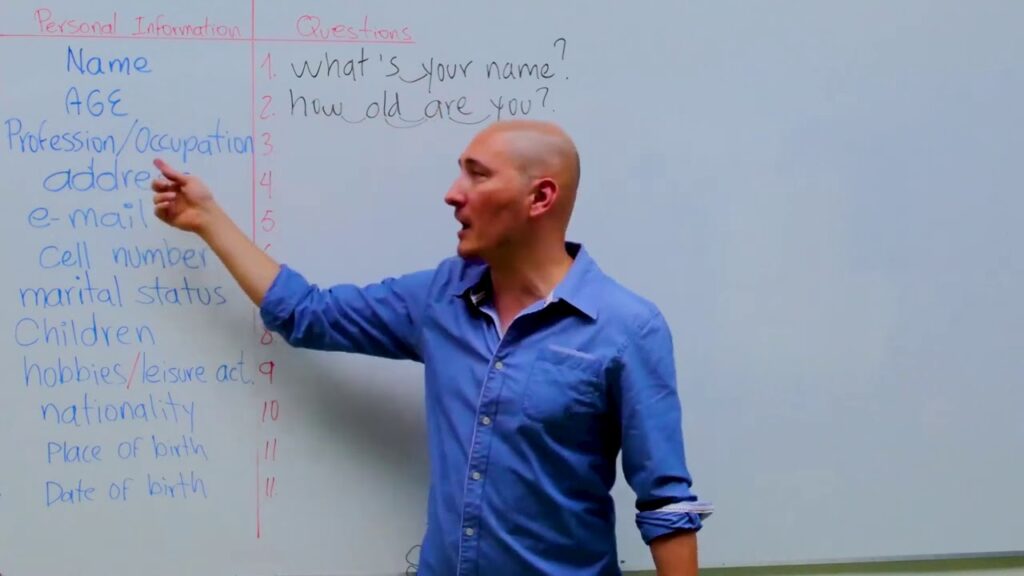 Personal Information Questions
Name 1. what's your name?
AGE 2. how old are you?
Profession/Occupation 3.
address 4
e-mail 5
Cell number
marital status
Children 8
hobbies/leisure act. 9
nationality 10
Place of birth 11
Date of birth 11.